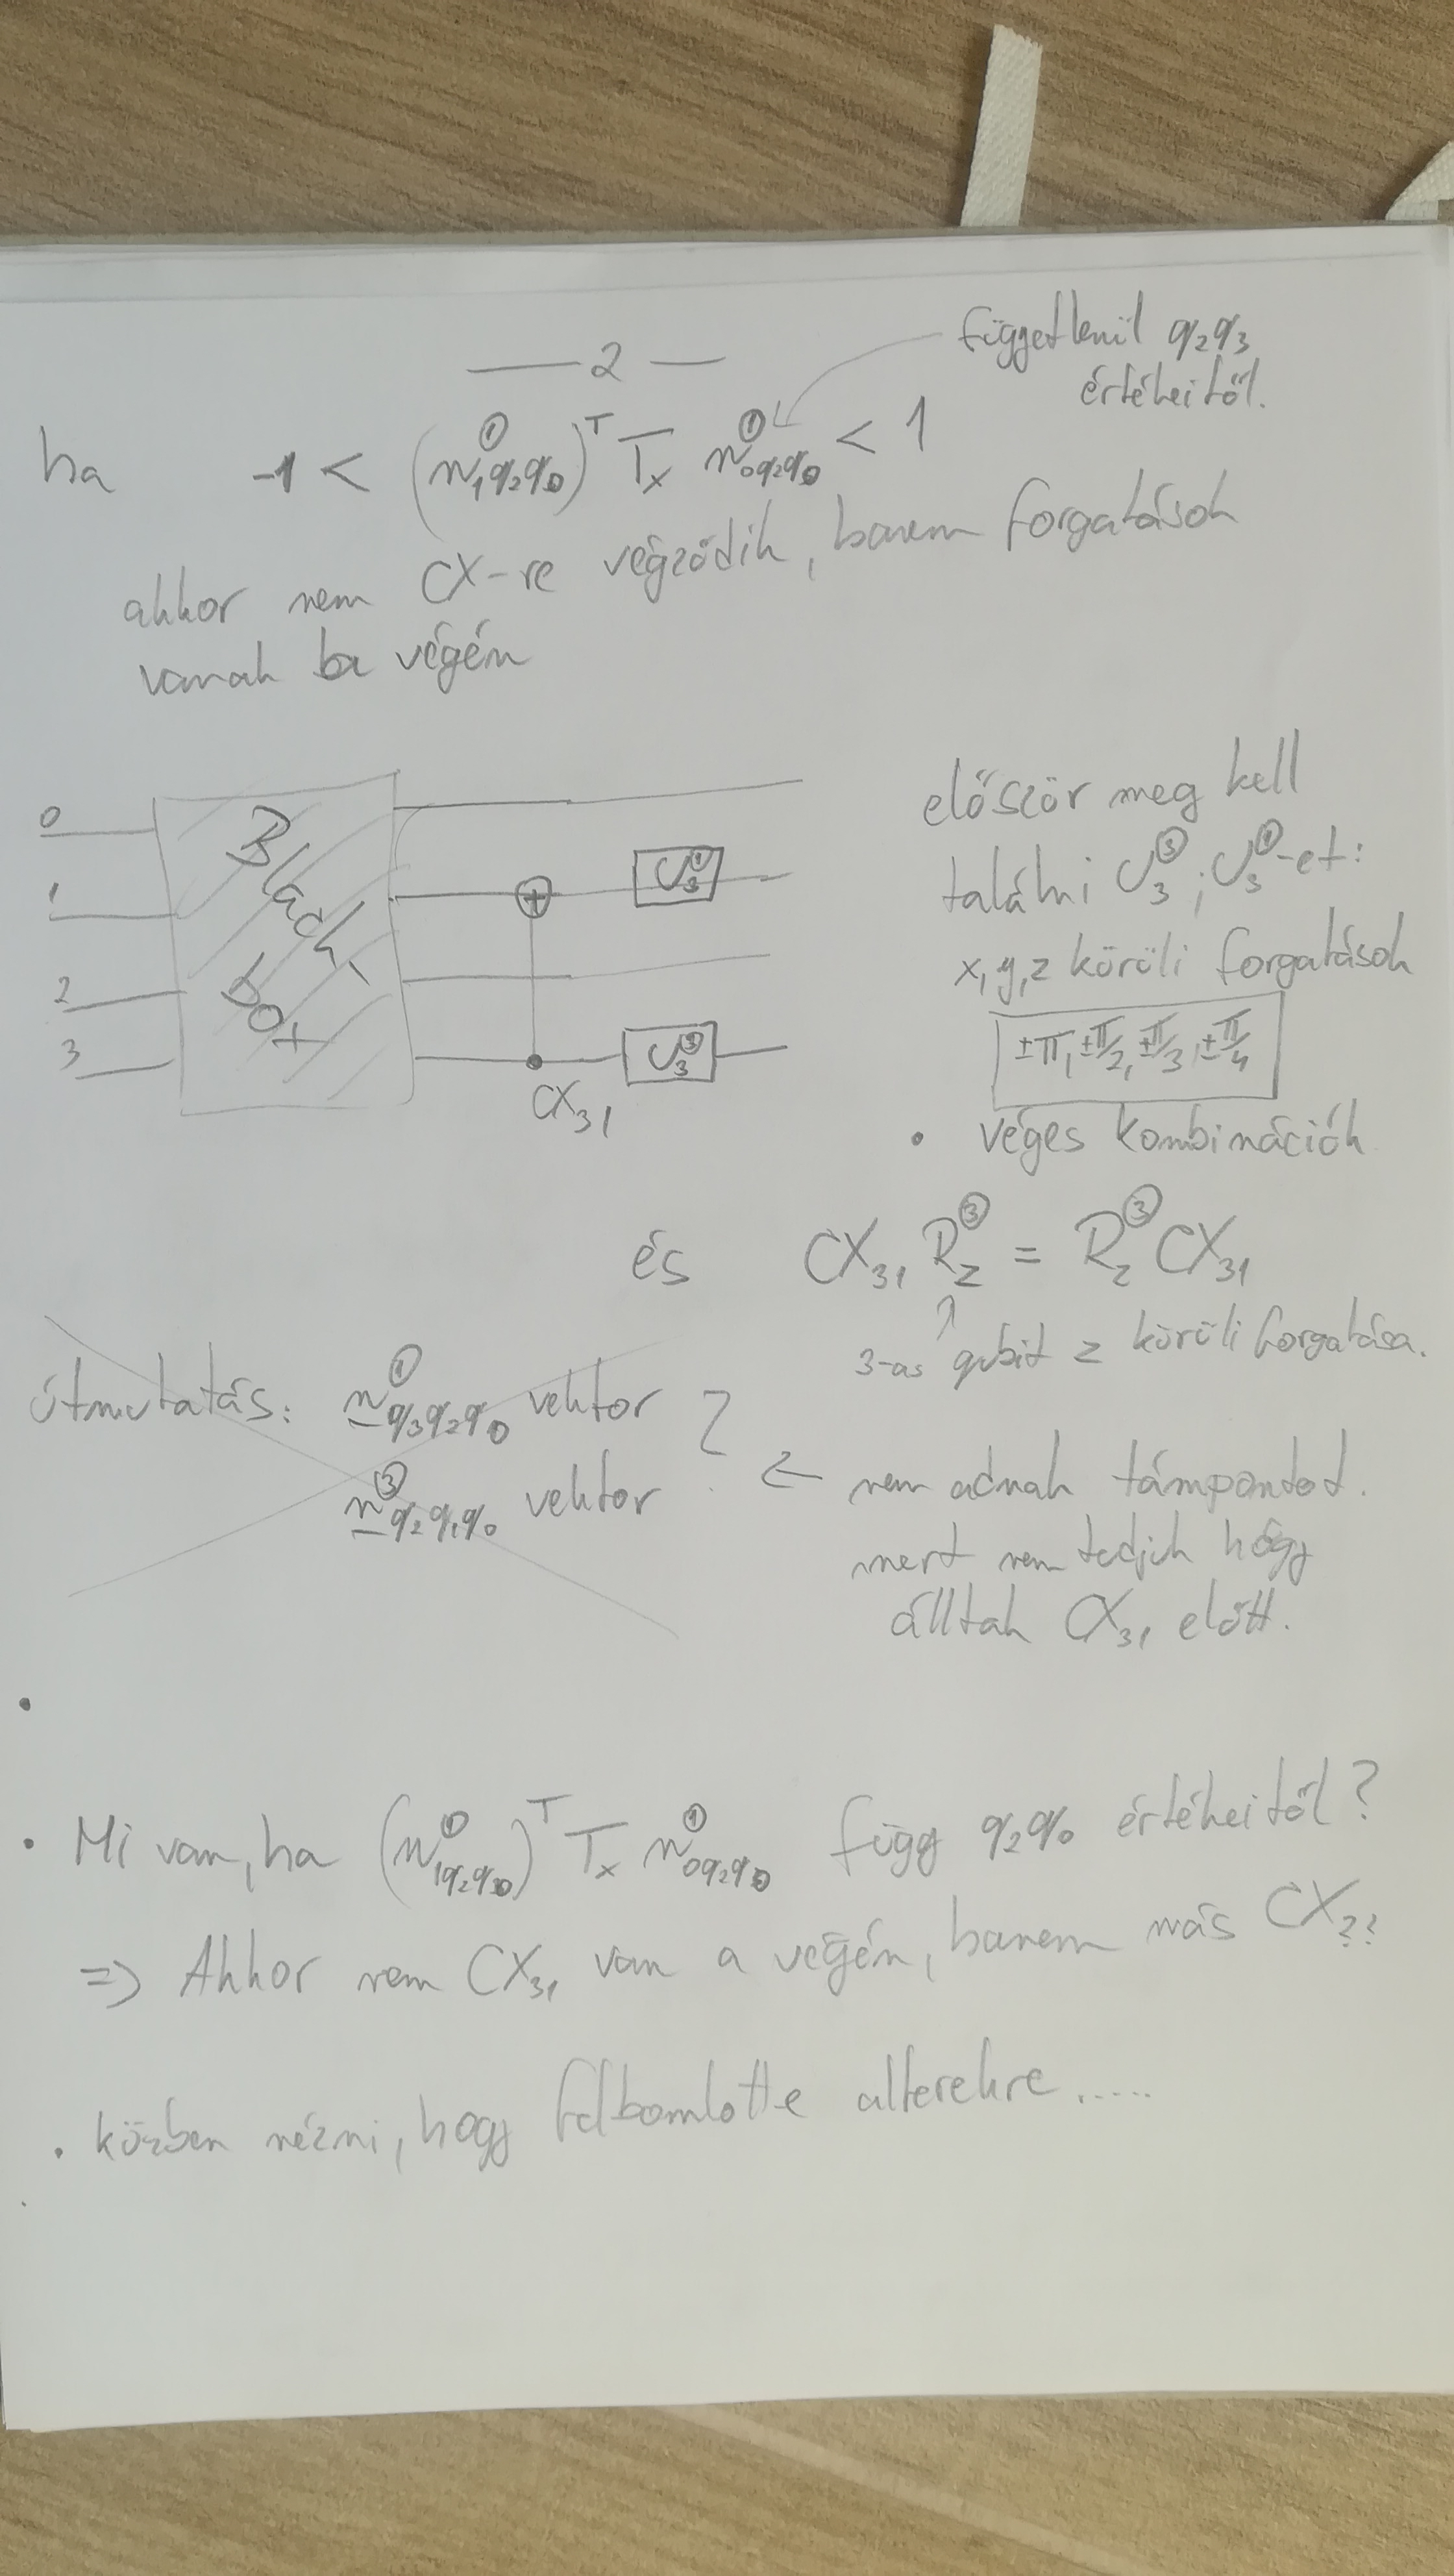 — 2 —
függetlenül q₂q₃
értékeitől.
ha -1 < (n^①_{1q₂q₀})^T T_x n^①_{0q₂q₀} < 1
akkor nem CX-re végződik, hanem forgatások
vanak ba végén
0
1
2
3
Black
box
U₃^①
U₃^③
CX₃₁
először meg kell
találni U₃^③, U₃^①-et:
x,y,z körüli forgatások
±π, ±π/2, ±π/3, ±π/4
• véges kombinációk
és CX₃₁ R_z^③ = R_z^③ CX₃₁
3-as qubit z körüli forgatása.
útmutatás: n^①_{q₃q₂q₀} vektor
n^③_{q₂q₁q₀} vektor
? ← nem adnak támpontot.
mert nem tudjuk hogy
álltak CX₃₁ előtt.
•
• Mi van, ha (n^①_{1q₂q₀})^T T_x n^①_{0q₂q₀} függ q₂q₀ értékeitől?
=> Akkor nem CX₃₁ van a végén, hanem más CX_{??}
• közben nézni, hogy felbomlotte alterekre.....